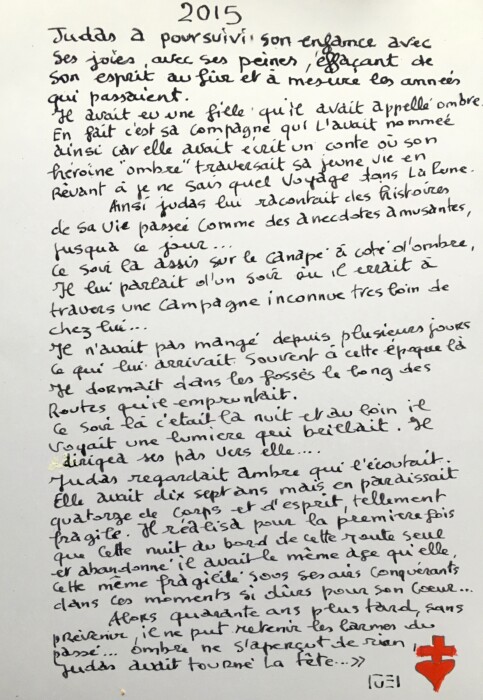 2015
Judas a poursuivi son enfance avec
ses joies, avec ses peines, effaçant de
son esprit au fur et à mesure les années
qui passaient.
Il avait eu une fille qu'il avait appellé ombre.
En fait c'est sa compagne qui l'avait nommeé
ainsi car elle avait écrit un conte où son
héroïne "ombre" traversait sa jeune vie en
Rêvant à je ne sais quel voyage dans la lune.
Ainsi judas lui racontait des histoires
de sa vie passeé comme des anecdotes amusantes,
jusqu'à ce jour...
Ce soir là assis sur le canapé à coté d'ombre,
Il lui parlait d'un soir où il errait à
travers une campagne inconnue tres loin de
chez lui...
Il n'avait pas mangé depuis plusieurs jours
Ce qui lui arrivait souvent à cette époque là
Il dormait dans les fossés le long des
Routes qu'il empruntait.
Ce soir là c'était la nuit et au loin il
Voyait une lumiere qui brillait. Il
dirigea ses pas vers elle....
Judas regardait ombre qui l'écoutait.
Elle avait dix sept ans mais en paraissait
quatorze de corps et d'esprit, tellement
fragile. Il réalisa pour la premiere fois
que cette nuit au bord de cette route seul
et abandonné il avait le même âge qu'elle,
cette même fragilité sous ses airs conquérants
dans ces moments si durs pour son coeur...
Alors quarante ans plus tard, sans
prévenir, il ne put retenir les larmes du
passé... ombre ne s'aperçut de rien,
Judas avait tourné la tête...»